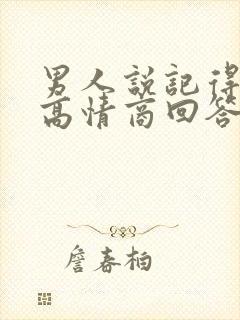 男人說記得
高情商回答
詹春柏